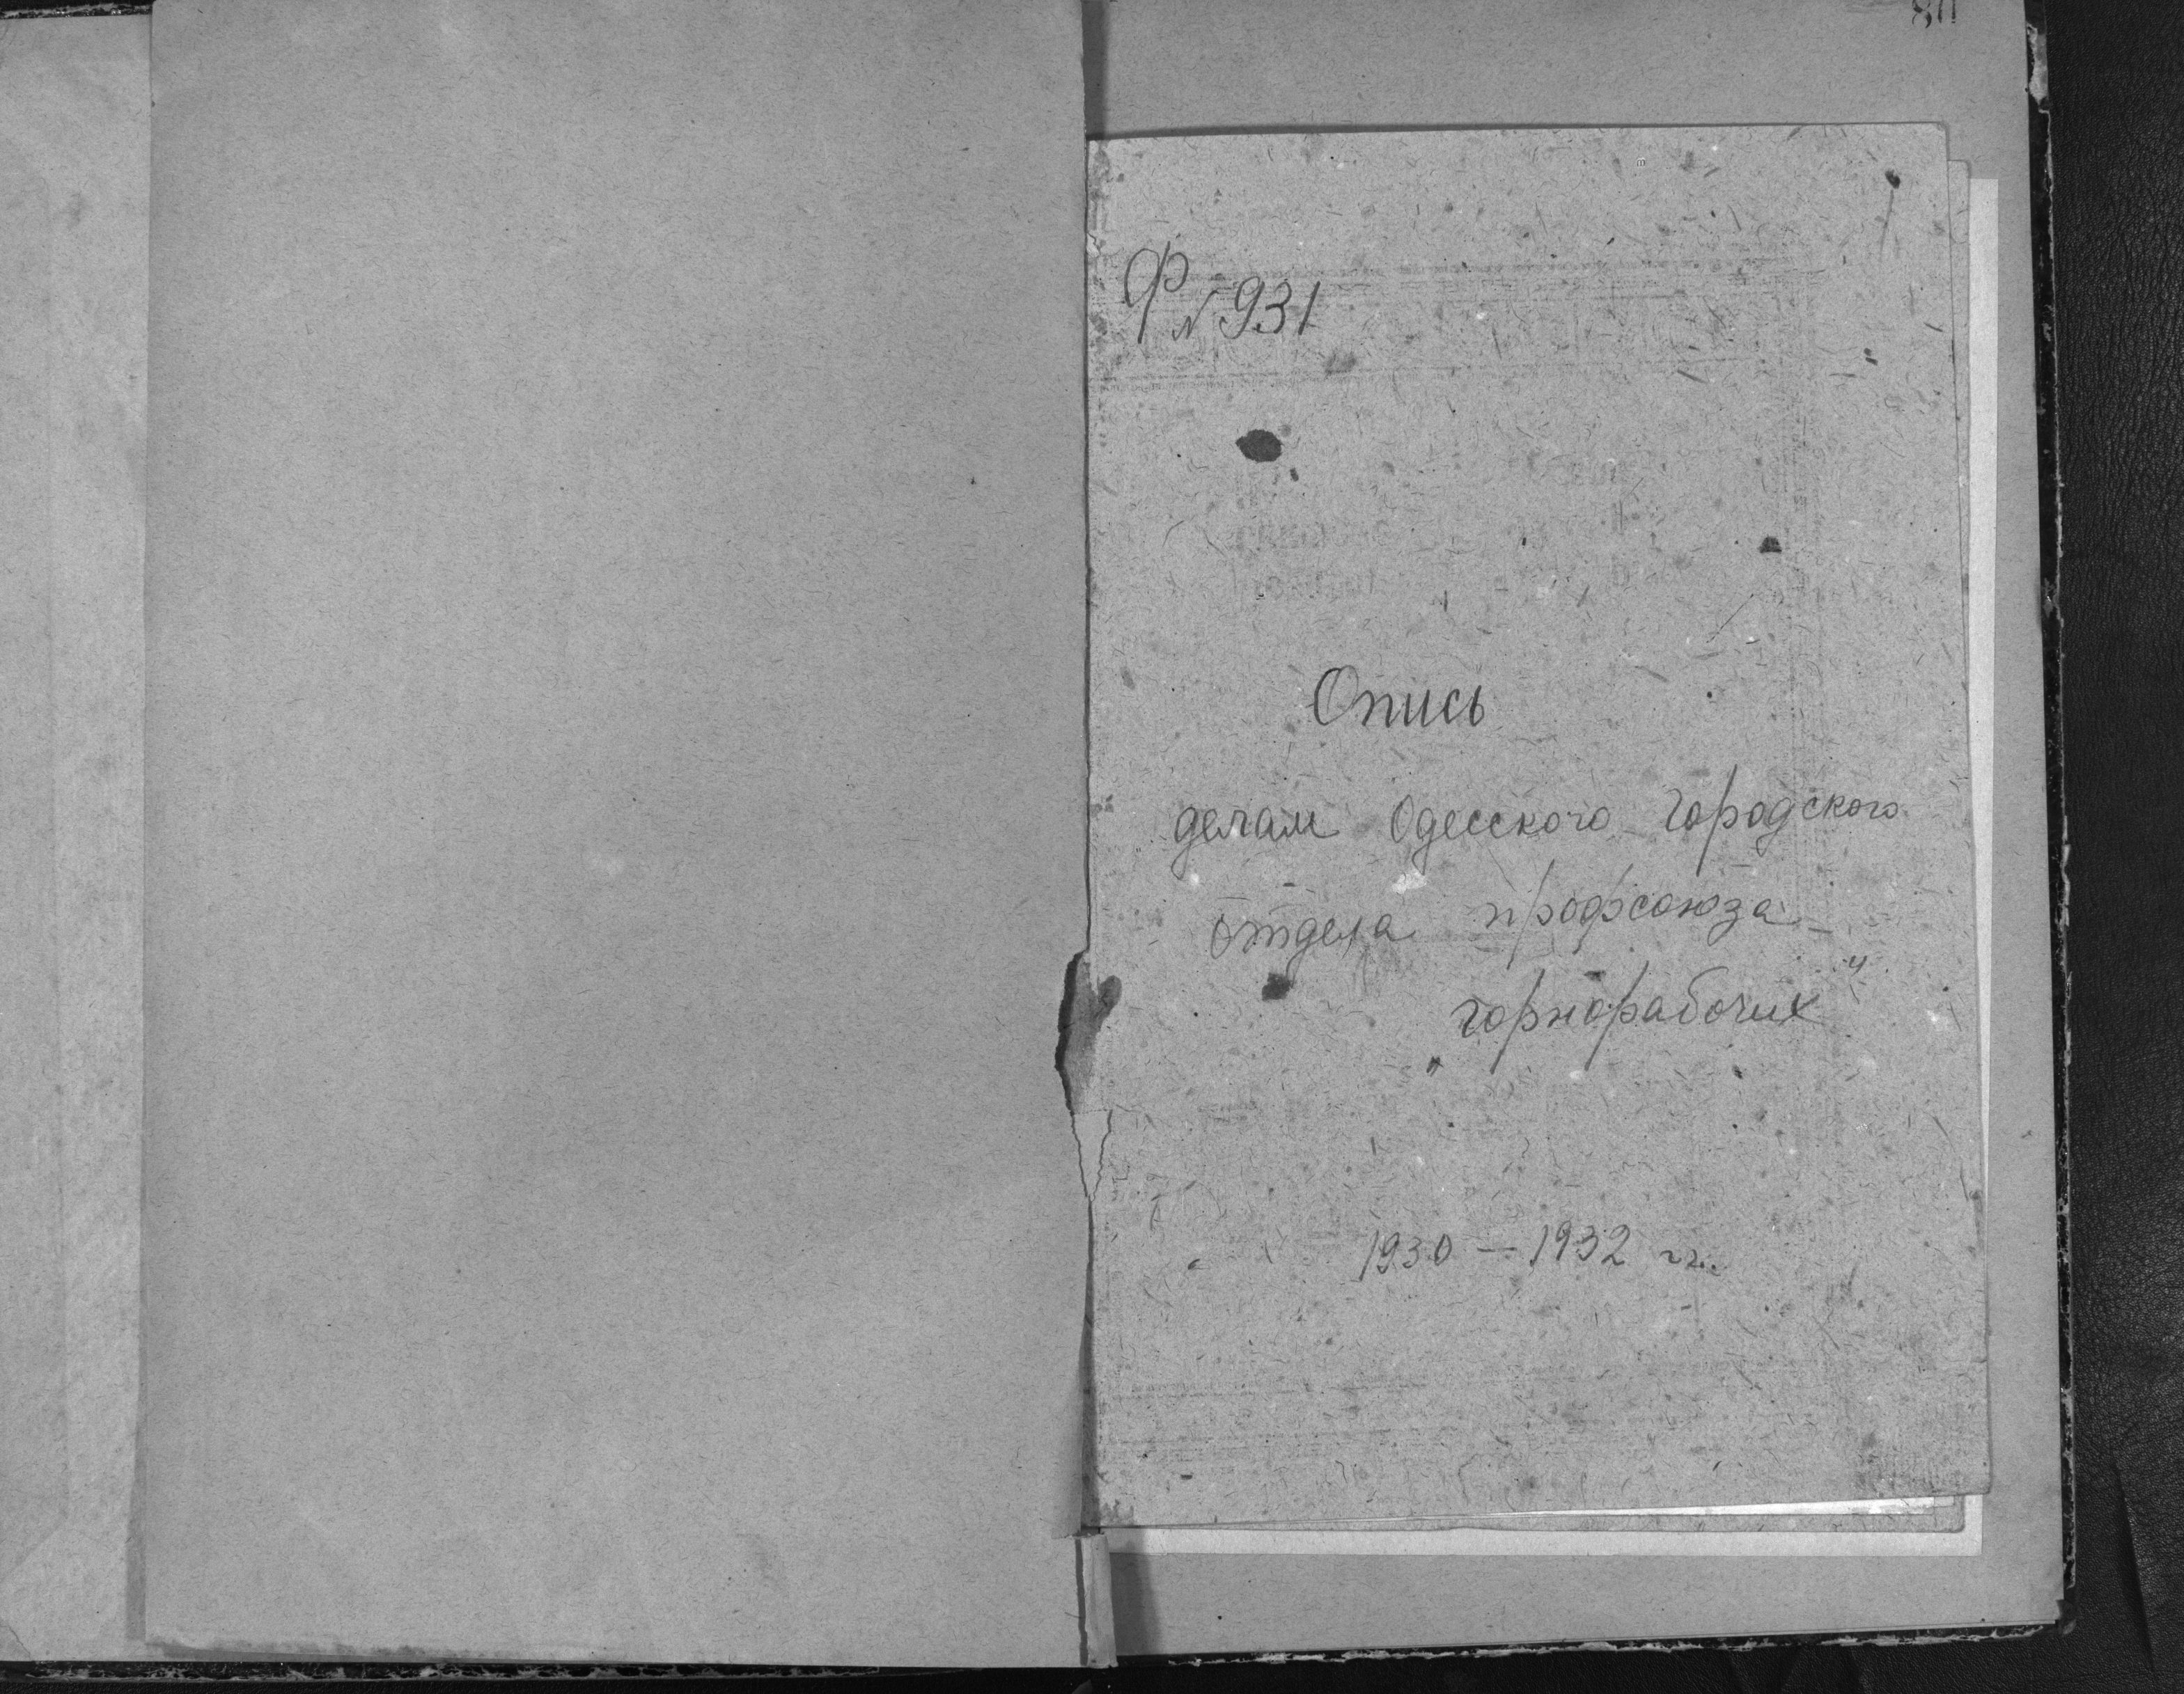 Ф № 931
Опись
делам Одесского Городского
отдела профсоюза
„горнорабочих"
1930 – 1932 гг.